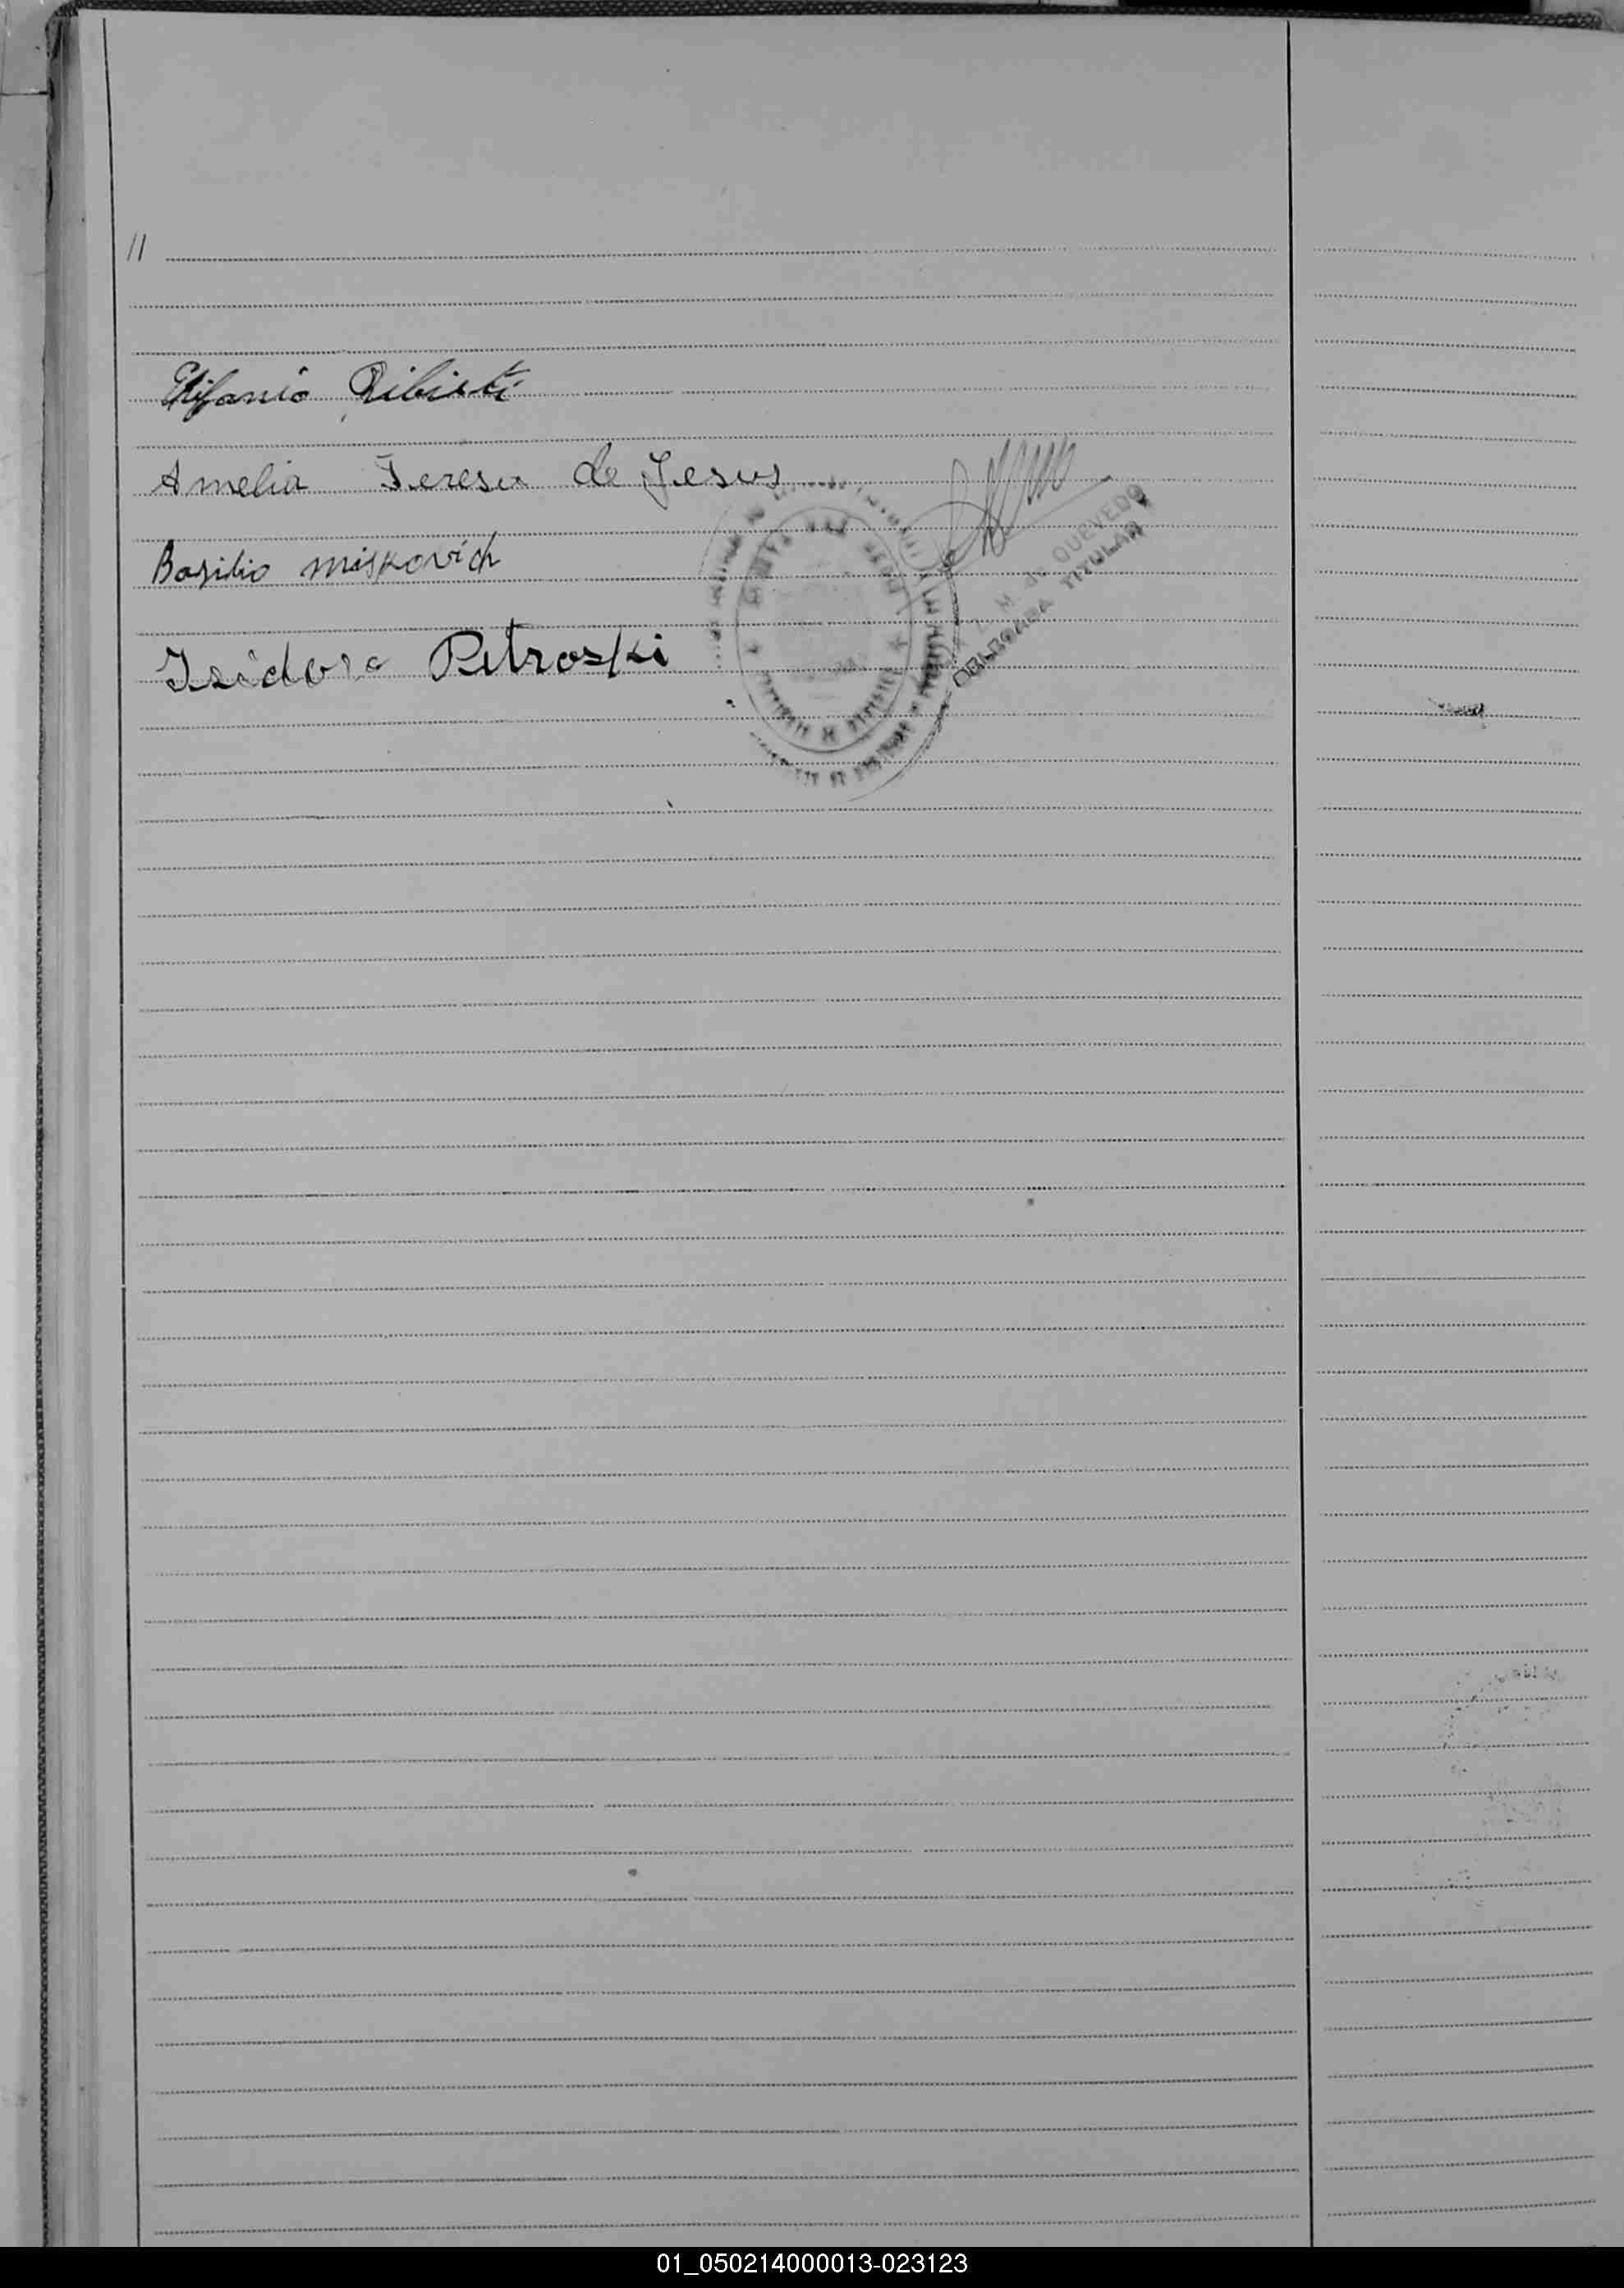 //
Epifanio Ribicki
Amelia Teresa de Jesus
Basilio miskovich
Isidoro Petroski
M. de QUEVEDO
DELEGADA TITULAR
01_050214000013-023123